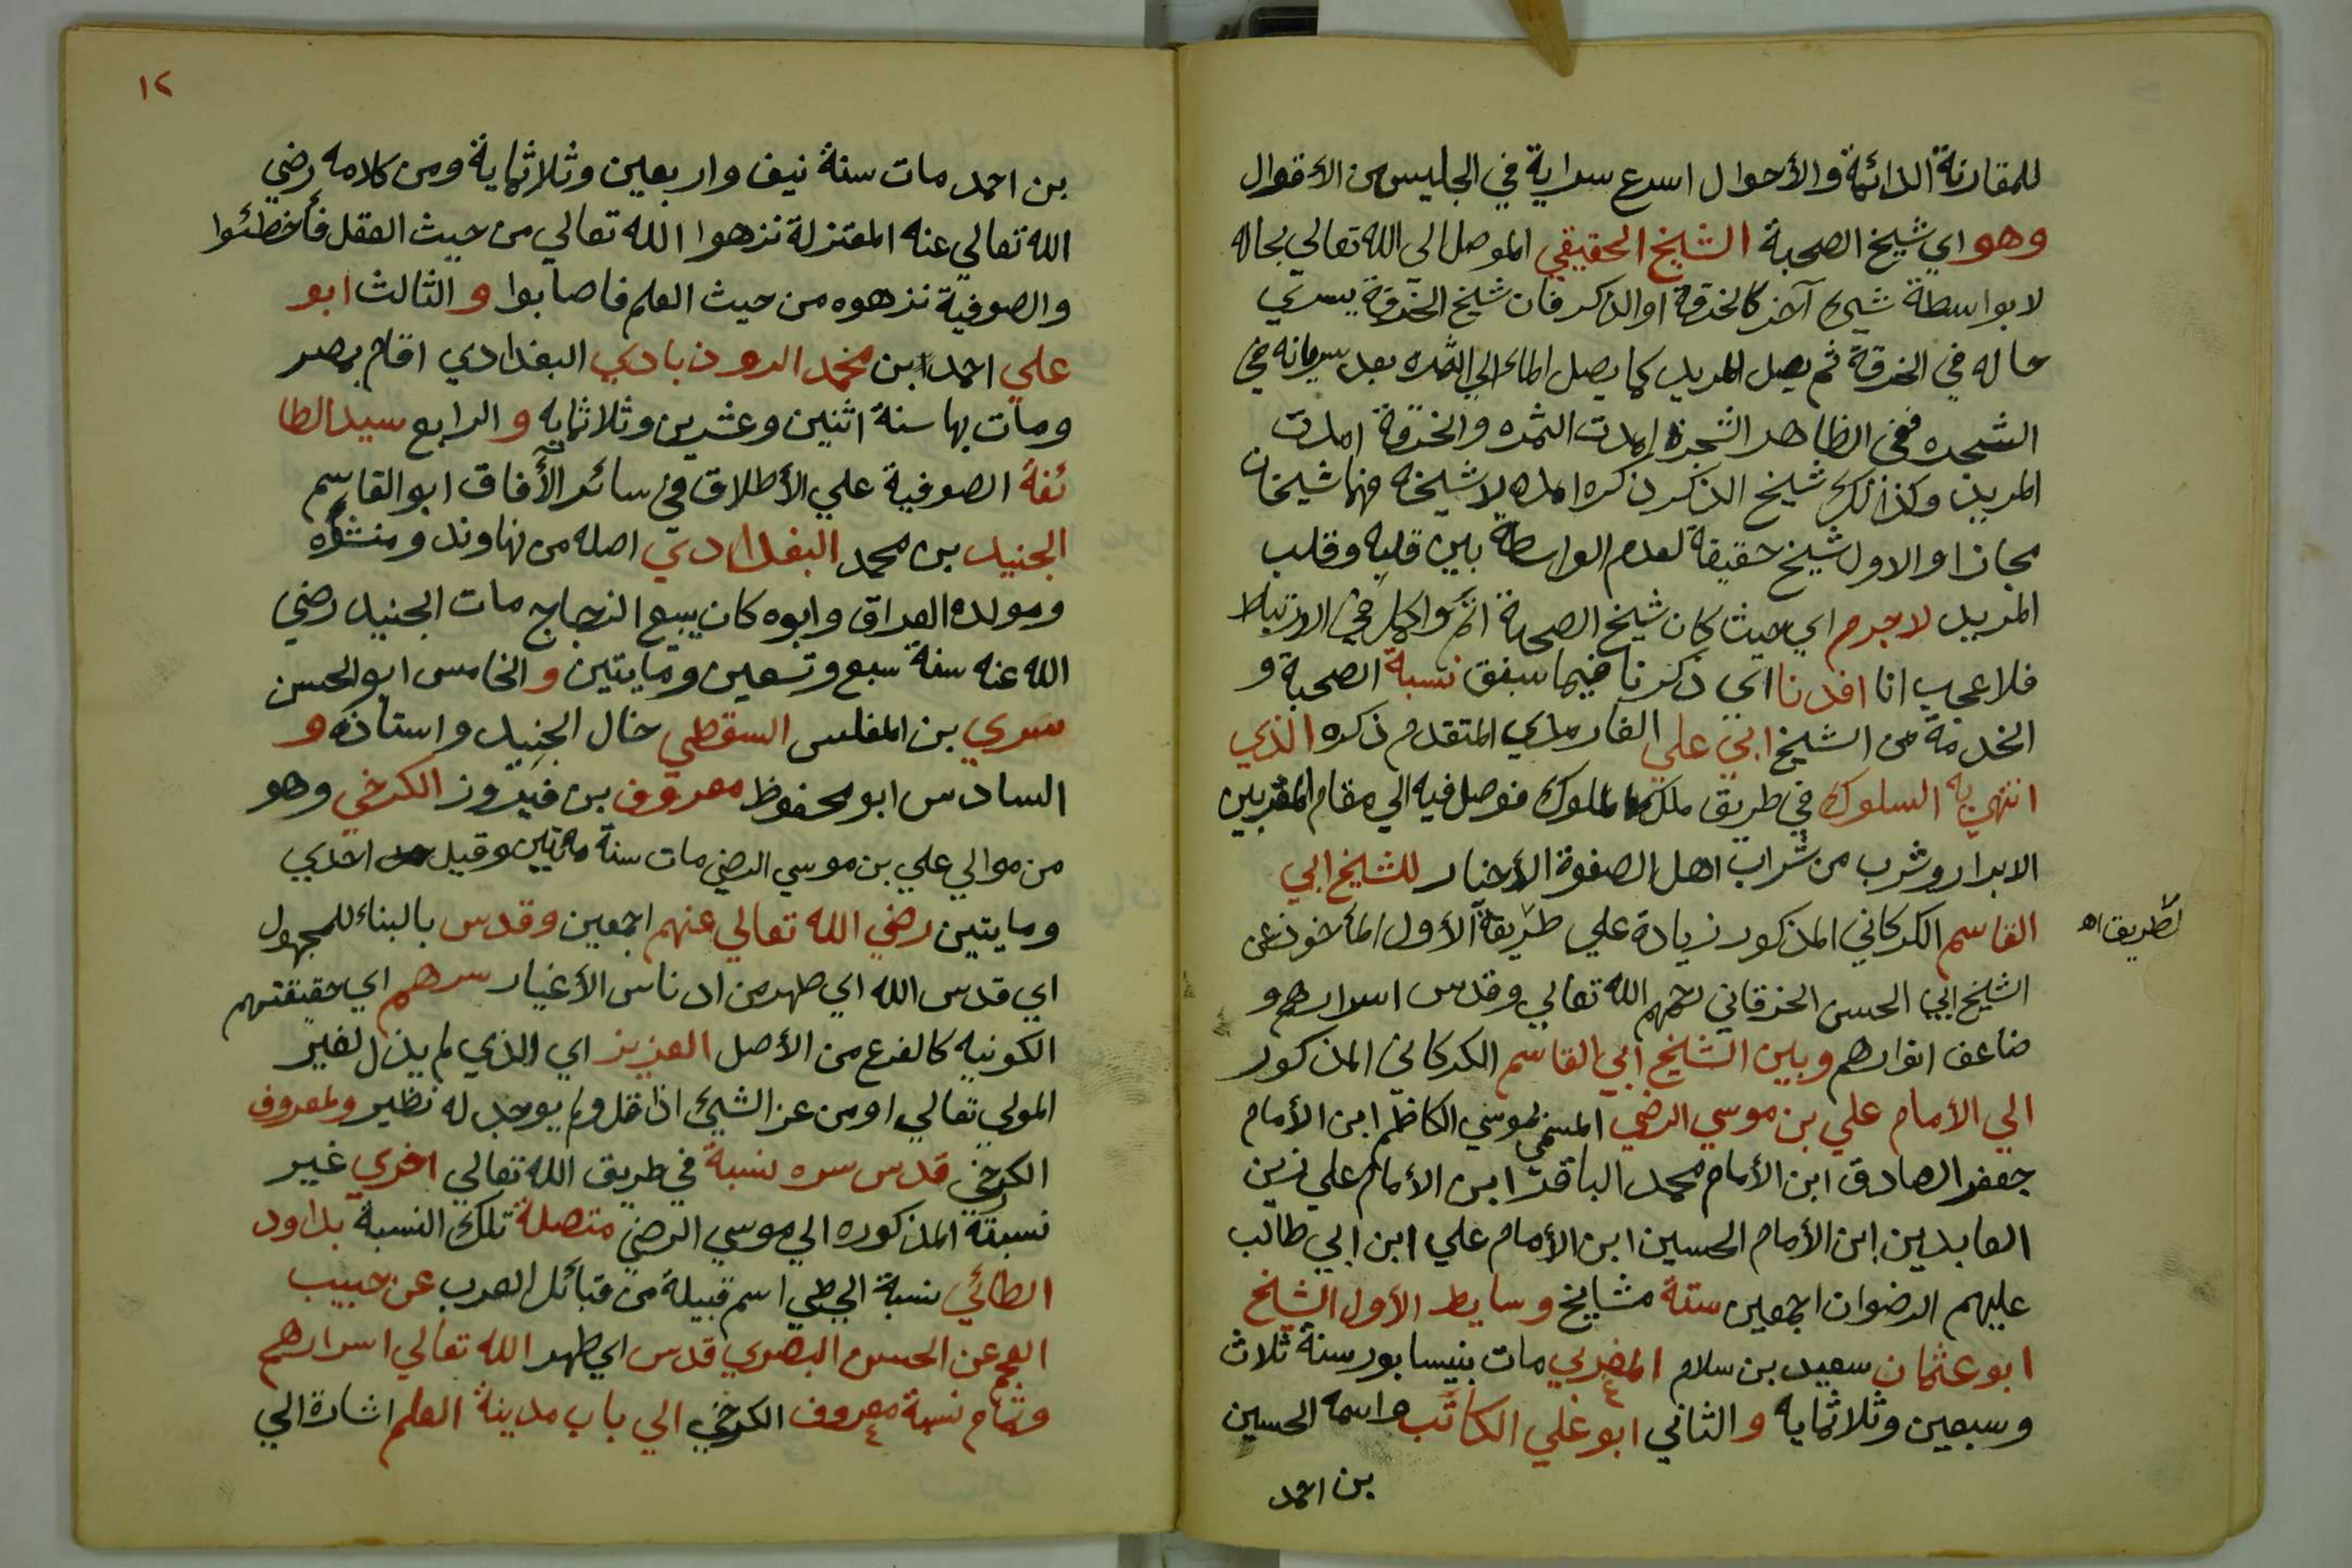 للمقارنة الدائمة والأحوال اسرع سراية في الجليس من الأقوال
وهو اي شيخ الصحبة الشيخ الحقيقي الموصل الى الله تعالي بحاله
لا بواسطة شيء آخر كالخرقة او الذكر فان شيخ الخرقة يسري
حاله في الخرقة ثم يصل للمريد كما يصل الماء الي الثمره بعد سريانه في
الشجره ففي الظاهر الشجرة امدت الثمره والخرقة امدت
المريد وكذلك شيخ الذكر ذكره امده لا شيخه فهما شيخان
مجازا والاول شيخ حقيقة لعدم الواسطة بين قلبه وقلب
المريد لاجرم اي حيث كان شيخ الصحبة اتم واكمل في الارتباط
فلا عجب انا افدنا اى ذكرنا فيما سبق نسبة الصحبة و
الخدمة من الشيخ ابي علي الفارمدي المتقدم ذكره الذي
انتهي به السلوك في طريق ملك الملوك فوصل فيه الي مقام المقربين
الابرار وشرب من شراب اهل الصفوة الأخيار للشيخ ابي
القاسم الكركاني المذكور زيادة علي طريقة الأول المأخوذ عن
لطريق اه
الشيخ ابي الحسن الخرقاني رحمهم الله تعالي وقدس اسرارهم و
ضاعف انوارهم وبين الشيخ ابي القاسم الكركاني المذكور
الي الأمام علي بن موسي الرضي المسمي بموسي الكاظم ابن الأمام
جعفر الصادق ابن الأمام محمد الباقر ابن الأمام علي زين
العابدين ابن الأمام الحسين ابن الأمام علي ابن ابي طالب
عليهم الرضوان اجمعين ستة مشايخ وسايط الأول الشيخ
ابو عثمان سعيد بن سلام المغربي مات بنيسابور سنة ثلاث
وسبعين وثلاثمايه والثاني ابو علي الكاتب واسمه الحسين
بن احمد
١٢
بن احمد مات سنة نيف واربعين وثلاثماية ومن كلامه رضي
الله تعالي عنه المعتزلة نزهوا الله تعالي من حيث العقل فأخطئوا
والصوفية نزهوه من حيث العلم فاصابوا والثالث ابو
علي احمد ابن محمد الروذبادي البغدادي اقام بمصر
ومات بها سنة اثنين وعشرين وثلاثمايه والرابع سيد الطا
ئفة الصوفية علي الأطلاق في سائر الأفاق ابو القاسم
الجنيد بن محمد البغدادي اصله من نهاوند ومنشؤه
ومولده العراق وابوه كان يبيع الزجاج مات الجنيد رضي
الله عنه سنة سبع وتسعين ومايتين والخامس ابو الحسن
سري بن المغلس السقطي خال الجنيد واستاذه و
السادس ابو محفوظ معروف بن فيروز الكرخي وهو
من موالي علي بن موسي الرضي مات سنة مائتين وقيل احدي
ومايتين رضي الله تعالي عنهم اجمعين وقدس بالبناء للمجهول
اي قدس الله اي طهر من ادناس الأغيار سرهم اي حقيقتهم
الكونيه كالفرع من الأصل العزيز اي الذي لم يذل لغير
المولي تعالي او من عز الشيئ اذا قل ولم يوجد له نظير ولمعروف
الكرخي قدس سره نسبة في طريق الله تعالي اخري غير
نسبته المذكوره الي موسي الرضي متصلة تلك النسبة بداود
الطائي نسبة الي طي اسم قبيلة من قبائل العرب عن حبيب
العجمي عن الحسن البصري قدس اي طهر الله تعالي اسرارهم
وتمام نسبة معروف الكرخي الي باب مدينة العلم اشارة الي